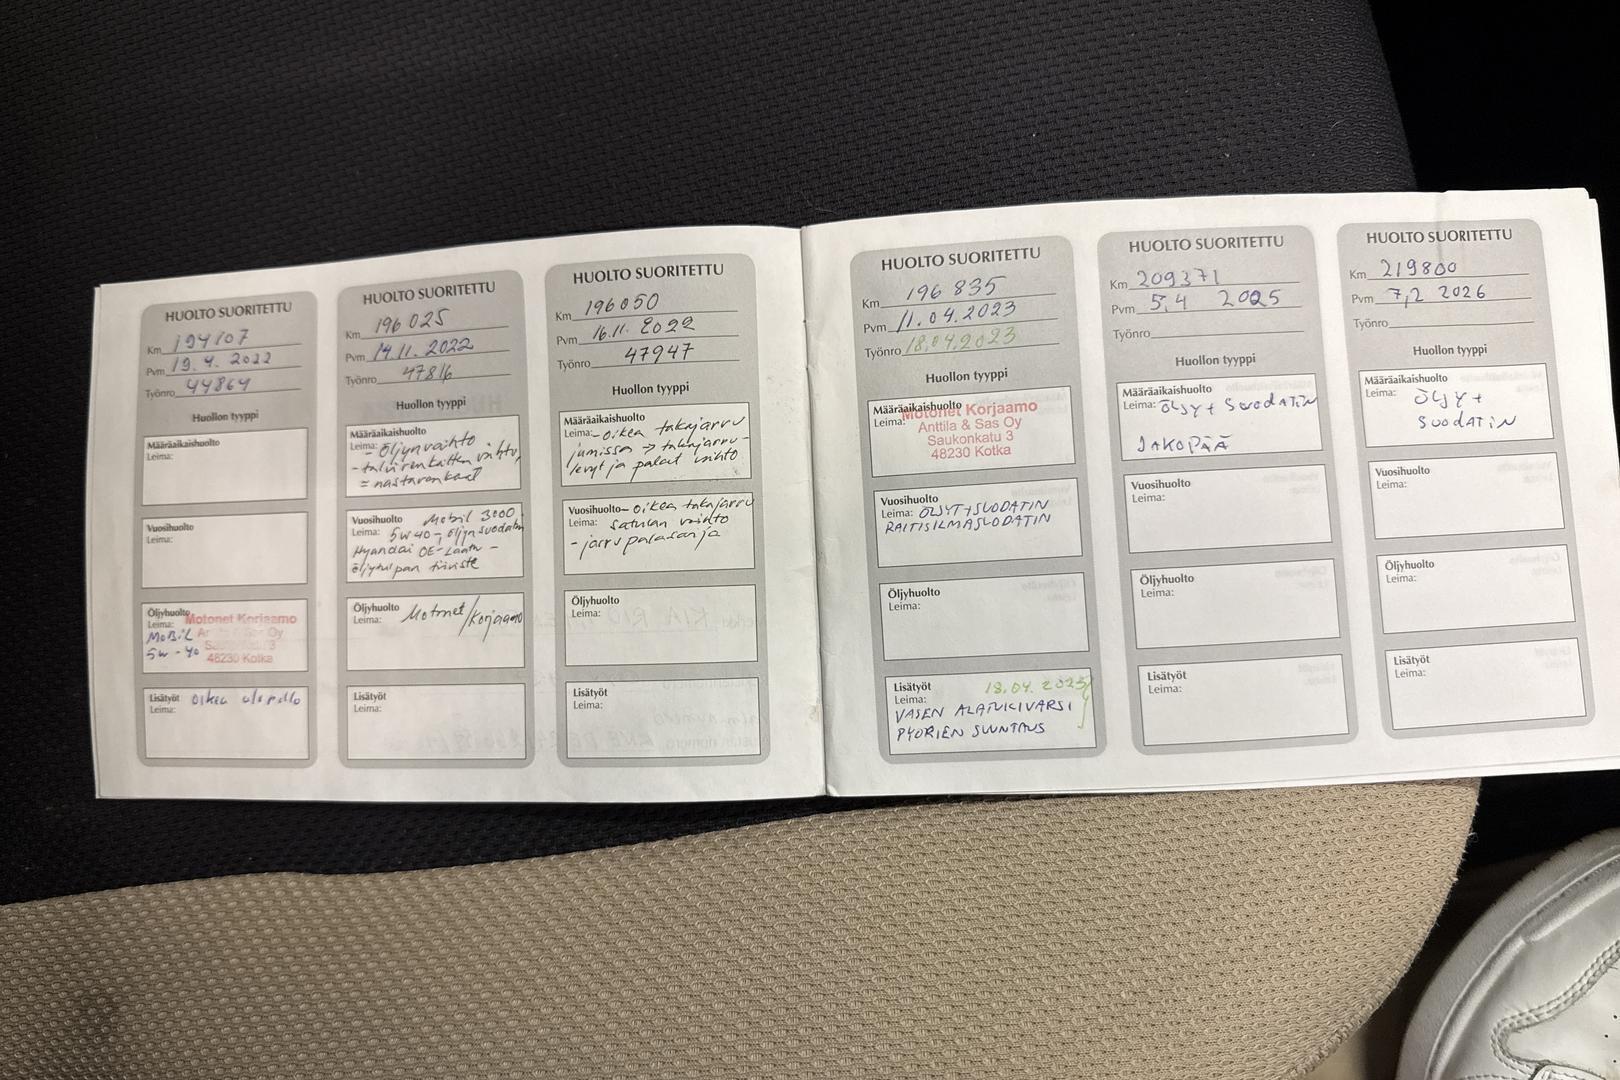 HUOLTO SUORITETTU
Km 194107
Pvm 19.4.2022
Työnro 44864
Huollon tyyppi
Määräaikaishuolto
Leima:
Vuosihuolto
Leima:
Öljyhuolto
Leima:
Motonet Korjaamo
Sas Oy
48230 Kotka
MOBIL
5W-40
Lisätyöt
Leima:
Oikea alapallo
HUOLTO SUORITETTU
Km 196025
Pvm 14.11.2022
Työnro 47816
Huollon tyyppi
Määräaikaishuolto
Leima: - öljynvaihto
- talvirenkaitten vaihto,
= nastarenkaat
Vuosihuolto Mobil 3000
Leima: 5W40, öljynsuodatin
Hyundai OE-Laatu -
öljytulpan tiiviste
Öljyhuolto
Leima: Motonet/Korjaamo
Lisätyöt
Leima:
HUOLTO SUORITETTU
Km 196050
Pvm 16.11.2022
Työnro 47947
Huollon tyyppi
Määräaikaishuolto
Leima: - oikea takajarru
jumissa → takajarru-
levyt ja palat vaihto
Vuosihuolto - oikea takajarru
Leima: satulan vaihto
- jarrupalasarja
Öljyhuolto
Leima:
Lisätyöt
Leima:
HUOLTO SUORITETTU
Km 196 835
Pvm 11.04.2023
Työnro 18.04.2023
Huollon tyyppi
Määräaikaishuolto
Leima:
Motonet Korjaamo
Anttila & Sas Oy
Saukonkatu 3
48230 Kotka
Vuosihuolto
Leima: ÖLJYT+SUODATIN
RAITISILMASUODATIN
Öljyhuolto
Leima:
Lisätyöt 18.04.2023
Leima:
VASEN ALATUKIVARSI
PYÖRIEN SUUNTAUS
HUOLTO SUORITETTU
Km 209371
Pvm 5.4 2025
Työnro
Huollon tyyppi
Määräaikaishuolto
Leima: ÖLJY + SUODATIN
JAKOPÄÄ
Vuosihuolto
Leima:
Öljyhuolto
Leima:
Lisätyöt
Leima:
HUOLTO SUORITETTU
Km 219800
Pvm 7,2 2026
Työnro
Huollon tyyppi
Määräaikaishuolto
Leima: ÖLJY+
SUODATIN
Vuosihuolto
Leima:
Öljyhuolto
Leima:
Lisätyöt
Leima: